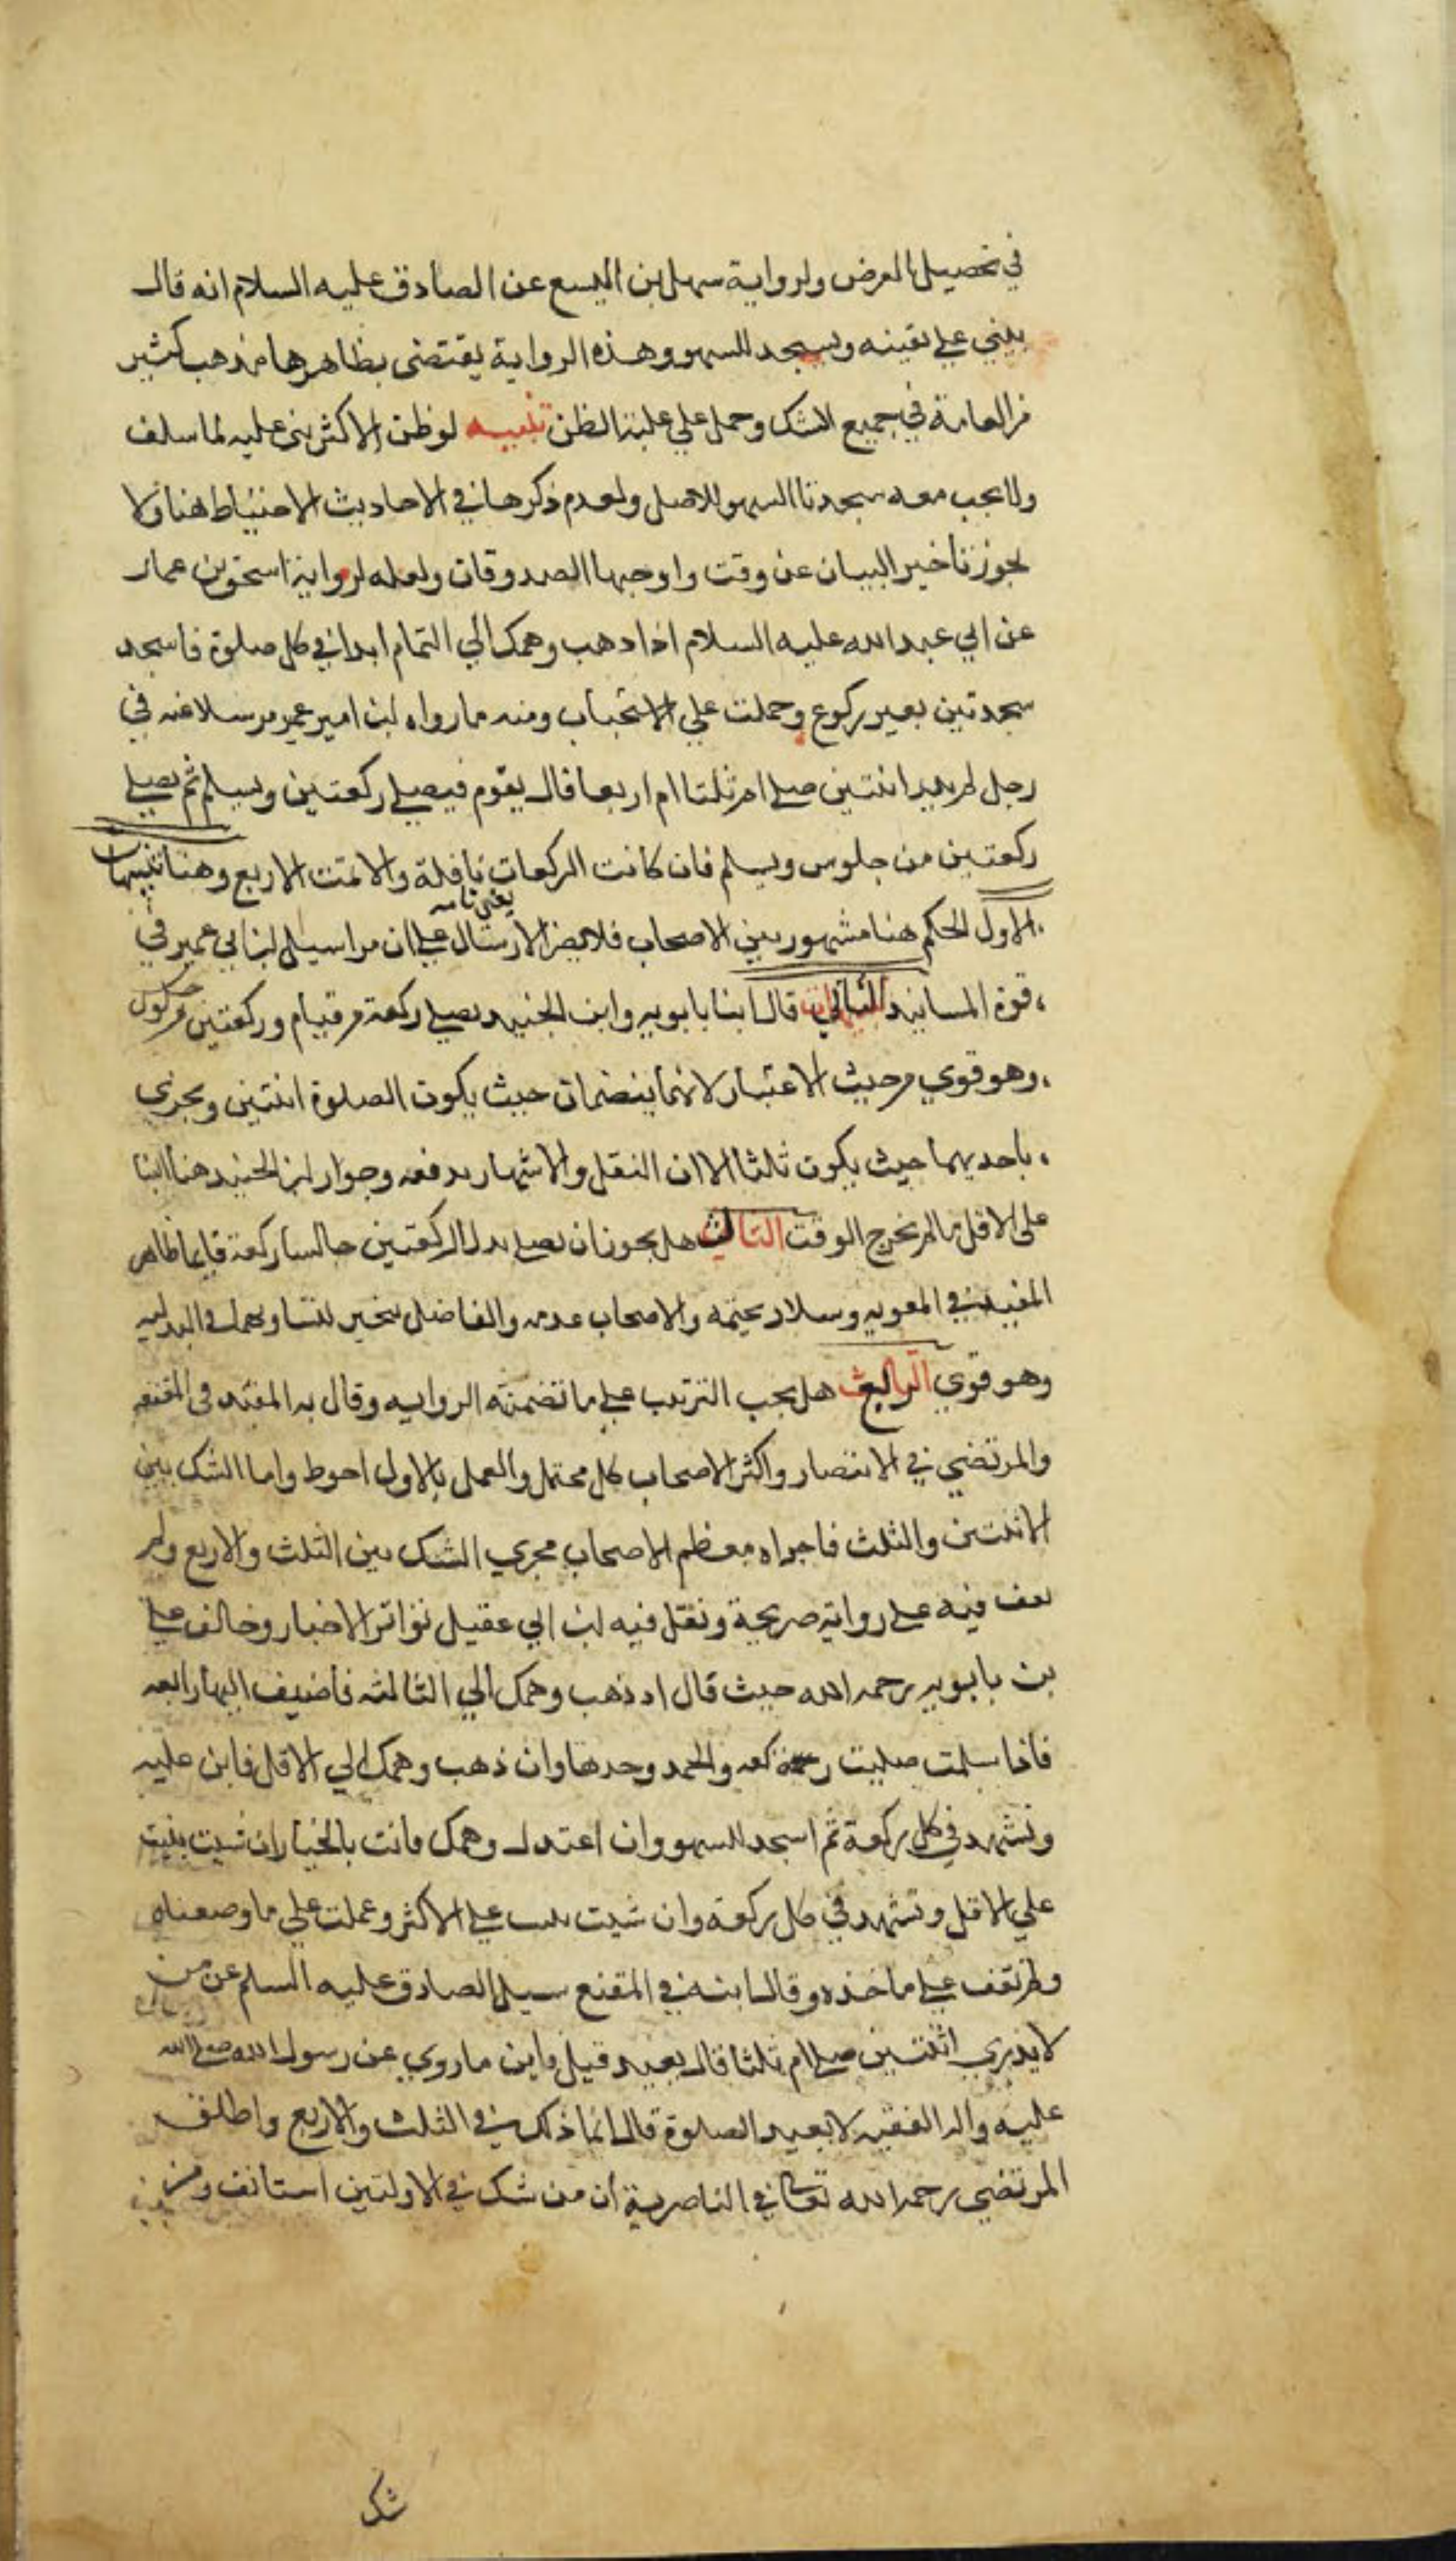 في تحصيل الغرض ولرواية سهل بن اليسع عن الصادق عليه السلام انه قال
يبني علي يقينه ويسجد للسهو وهذه الرواية يقتضى بظاهرها مذهب كثير
من العامة في جميع الشك وحمل علي غلبة الظن تنبيه لو ظن الاكثر بنى عليه لما سلف
ولا يجب معه سجدتا السهو للاصل ولعدم ذكرها في الاحاديث الاحتياط هنا ولا
يجوز تاخير البيان عن وقت واوجبها الصدوقان ولعله لرواية اسحق بن عمار
عن ابي عبد الله عليه السلام اذا ذهب وهمك الي التمام ابدا في كل صلوة فاسجد
سجدتين بغير ركوع وحملت علي الاستحباب ومنه ما رواه ابن ابي عمير مرسلا عنه في
رجل لم يدر اثنتين صلي ام ثلثا ام اربعا قال يقوم فيصلي ركعتين ويسلم ثم يصلي
ركعتين من جلوس ويسلم فان كانت الركعات نافلة والا تمت الاربع وهنا تنبيهات
الاول الحكم هنا مشهور بين الاصحاب فلا يضر الارسال علي ان مراسيل ابن ابي عمير في
قوة المسانيد الثاني قال ابنا بابويه وابن الجنيد يصلي ركعة من قيام وركعتين من
وهو قوي من حيث الاعتبار لانهما ينضمان حيث يكون الصلوة اثنتين ويجزي
باحديهما حيث يكون ثلثا الا ان النقل والاشتهار يدفعه وجواز ابن الجنيد هنا البنا
على الاقل ما لم يخرج الوقت الثالث هل يجوز ان يصلي بدل الركعتين جالسا ركعة قايما ظاهر
المفيد في وسلار يحتمه والاصحاب عدمه والفاضل يتخير لتساويهما في البدليه
وهو قوي الرابع هل يجب الترتيب علي ما تضمنته الروايه وقال به المفيد في المقنعه
والمرتضي في الانتصار واكثر الاصحاب كل محتمل والعمل بالاول احوط واما الشك بين
الاثنتين والثلث فاجراه معظم الاصحاب مجري الشك بين الثلث والاربع ولم
نقف فيه علي رواية صريحة ونقل فيه ابن ابي عقيل تواتر الاخبار وخالف علي
بن بابويه رحمه الله حيث قال اذ ذهب وهمك الي الثالثه فاضيف اليها رابعه
فاذا سلمت صليت ركعه والحمد وحدها وان ذهب وهمك الي الاقل فابن عليه
وتشهد في كل ركعة ثم اسجد للسهو وان اعتدل وهمك فانت بالخيار ان شيت بنيت
علي الاقل وتشهد في كل ركعة وان شيت بنيت علي الاكثر وعملت علي ما وصفناه
ولم نقف علي ماخذه وقال ابنه في المقنع سيل الصادق عليه السلم عن من
لا يدري اثنتين صلي ام ثلثا قال يعيد قيل فاين ما روي عن رسول الله صلي الله
عليه واله الفقيه لا يعيد الصلوة قال انما ذلك في الثلث والاربع واطلق
المرتضي رحمه الله تعالي في الناصرية ان من شك في الاولتين استانف ومن
شك